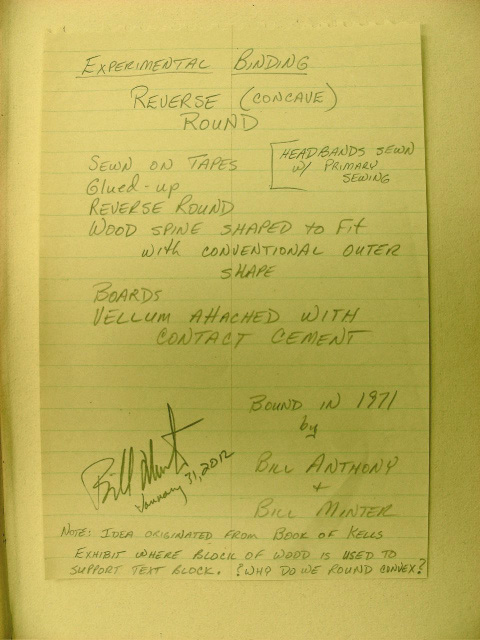 EXPERIMENTAL BINDING
REVERSE (CONCAVE)
ROUND
HEADBANDS SEWN
W/ PRIMARY
SEWING
SEWN ON TAPES
Glued-up
REVERSE ROUND
WOOD SPINE SHAPED to Fit
with CONVENTIONAL OUTER
SHAPE
BOARDS
VELLUM ATTACHED WITH
CONTACT CEMENT
BOUND IN 1971
by
BILL ANTHONY
+
BILL MINTER
Bill Minter
January 31, 2012
NOTE: IDEA ORIGINATED FROM BOOK OF KELLS
EXHIBIT WHERE BLOCK OF WOOD IS USED TO
SUPPORT TEXT BLOCK. ?WHY DO WE ROUND CONVEX?